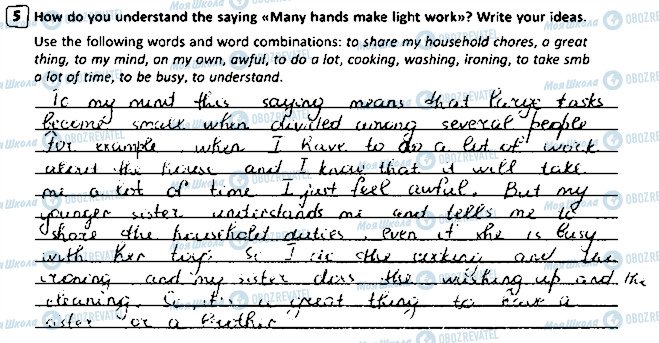 5 How do you understand the saying «Many hands make light work»? Write your ideas.
Use the following words and word combinations: to share my household chores, a great
thing, to my mind, on my own, awful, to do a lot, cooking, washing, ironing, to take smb
a lot of time, to be busy, to understand.
To my mind this saying means that large tasks
become small when divided among several people
For example, when I have to do a lot of work
about the house and I know that it will take
me a lot of time I just feel awful. But my
younger sister understands me and tells me to
share the household duties, even if she is busy
with her toys. So I do the cooking and the
ironing and my sister does the washing up and the
cleaning. So it's a great thing to have a
sister or a brother
Моя Школа OBOZREVATEL